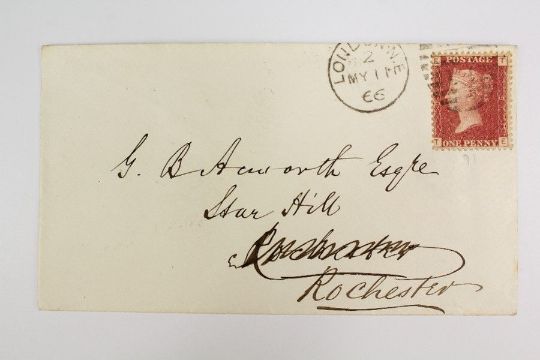 LONDON. N.E
2
MY 11
66
POSTAGE
ONE PENNY
T E
G. B Acworth Esqre
Star Hill
Rochester